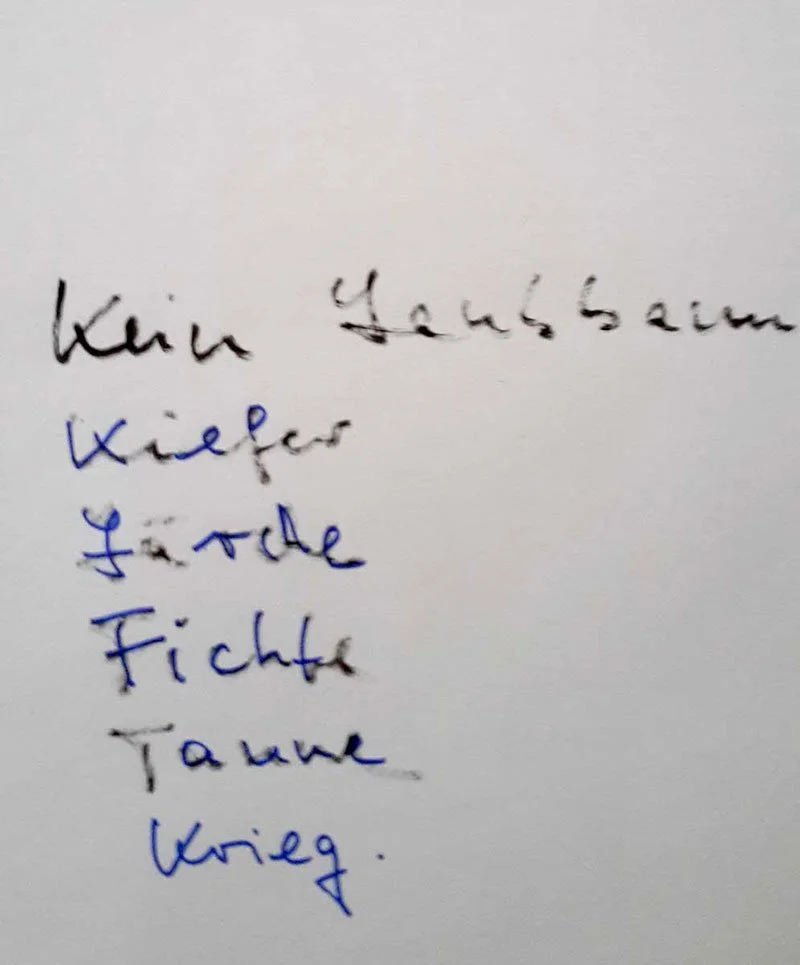 Kein Laubbaum
Kiefer
Lärche
Fichte
Tanne
Krieg.